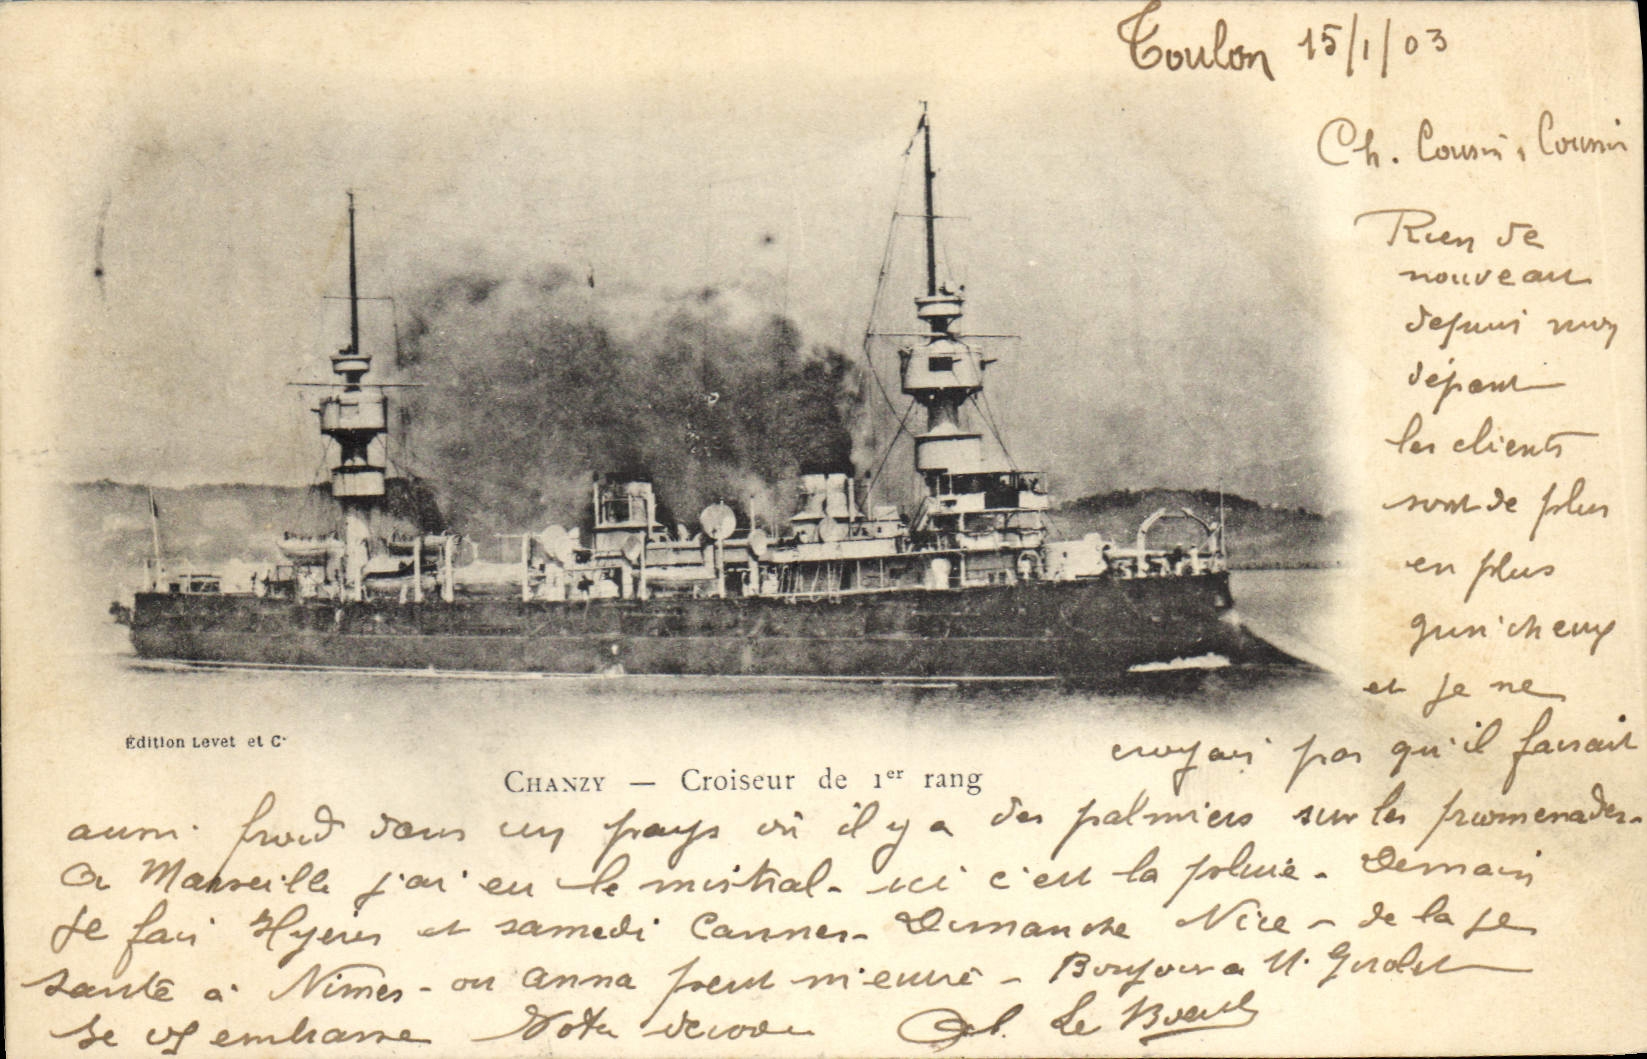 Toulon 15/1/03
Ch. Cousin, Cousin
Rien de
nouveau
depuis mon
départ
les clients
sont de plus
en plus
grincheux
et je ne
Édition Levet et Cie
croyais pas qu'il faisait
CHANZY — Croiseur de 1er rang
aussi froid dans un pays où il y a des palmiers sur les promenades.
à Marseille j'ai eu le mistral - ici c'est la pluie - Demain
je fais Hyères et samedi Cannes - Dimanche Nice - de là je
saute à Nîmes - où Anna peut m'ecrire - Bonjour à M.
Je vs embrasse Votre dévoué Le